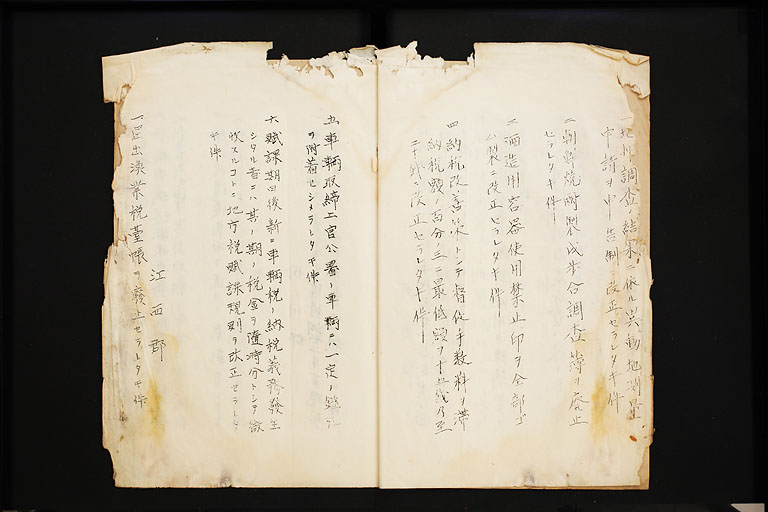 一、地押調査ノ結果ニ依ル異動地測量
申請ヲ申告制ニ改正セラレタキ件
二、朝鮮焼酎製成歩合調査簿ヲ廃止
セラレタキ件
三、酒造用容器使用禁止印ヲ全部ゴ
ム製ニ改正セラレタキ件
四、納税改善策トシテ督促手数料ヲ滞
納税額ノ百分ノ三ニ最低額ヲ十五銭乃至
二十銭ニ改正セラレタキ件
五、車輌取締上官公署ノ車輌ニハ一定ノ
ヲ附着セシメラレタキ件
六、賦課期日後新ニ車輌税ノ納税義務発生
シタル者ニハ其ノ期ノ税金ヲ随時分トシテ徴
収スルコトニ地方税賦課規則ヲ改正セラレタ
キ件
江西郡
一、屋漁業税台帳ヲ廃止セラレタキ件